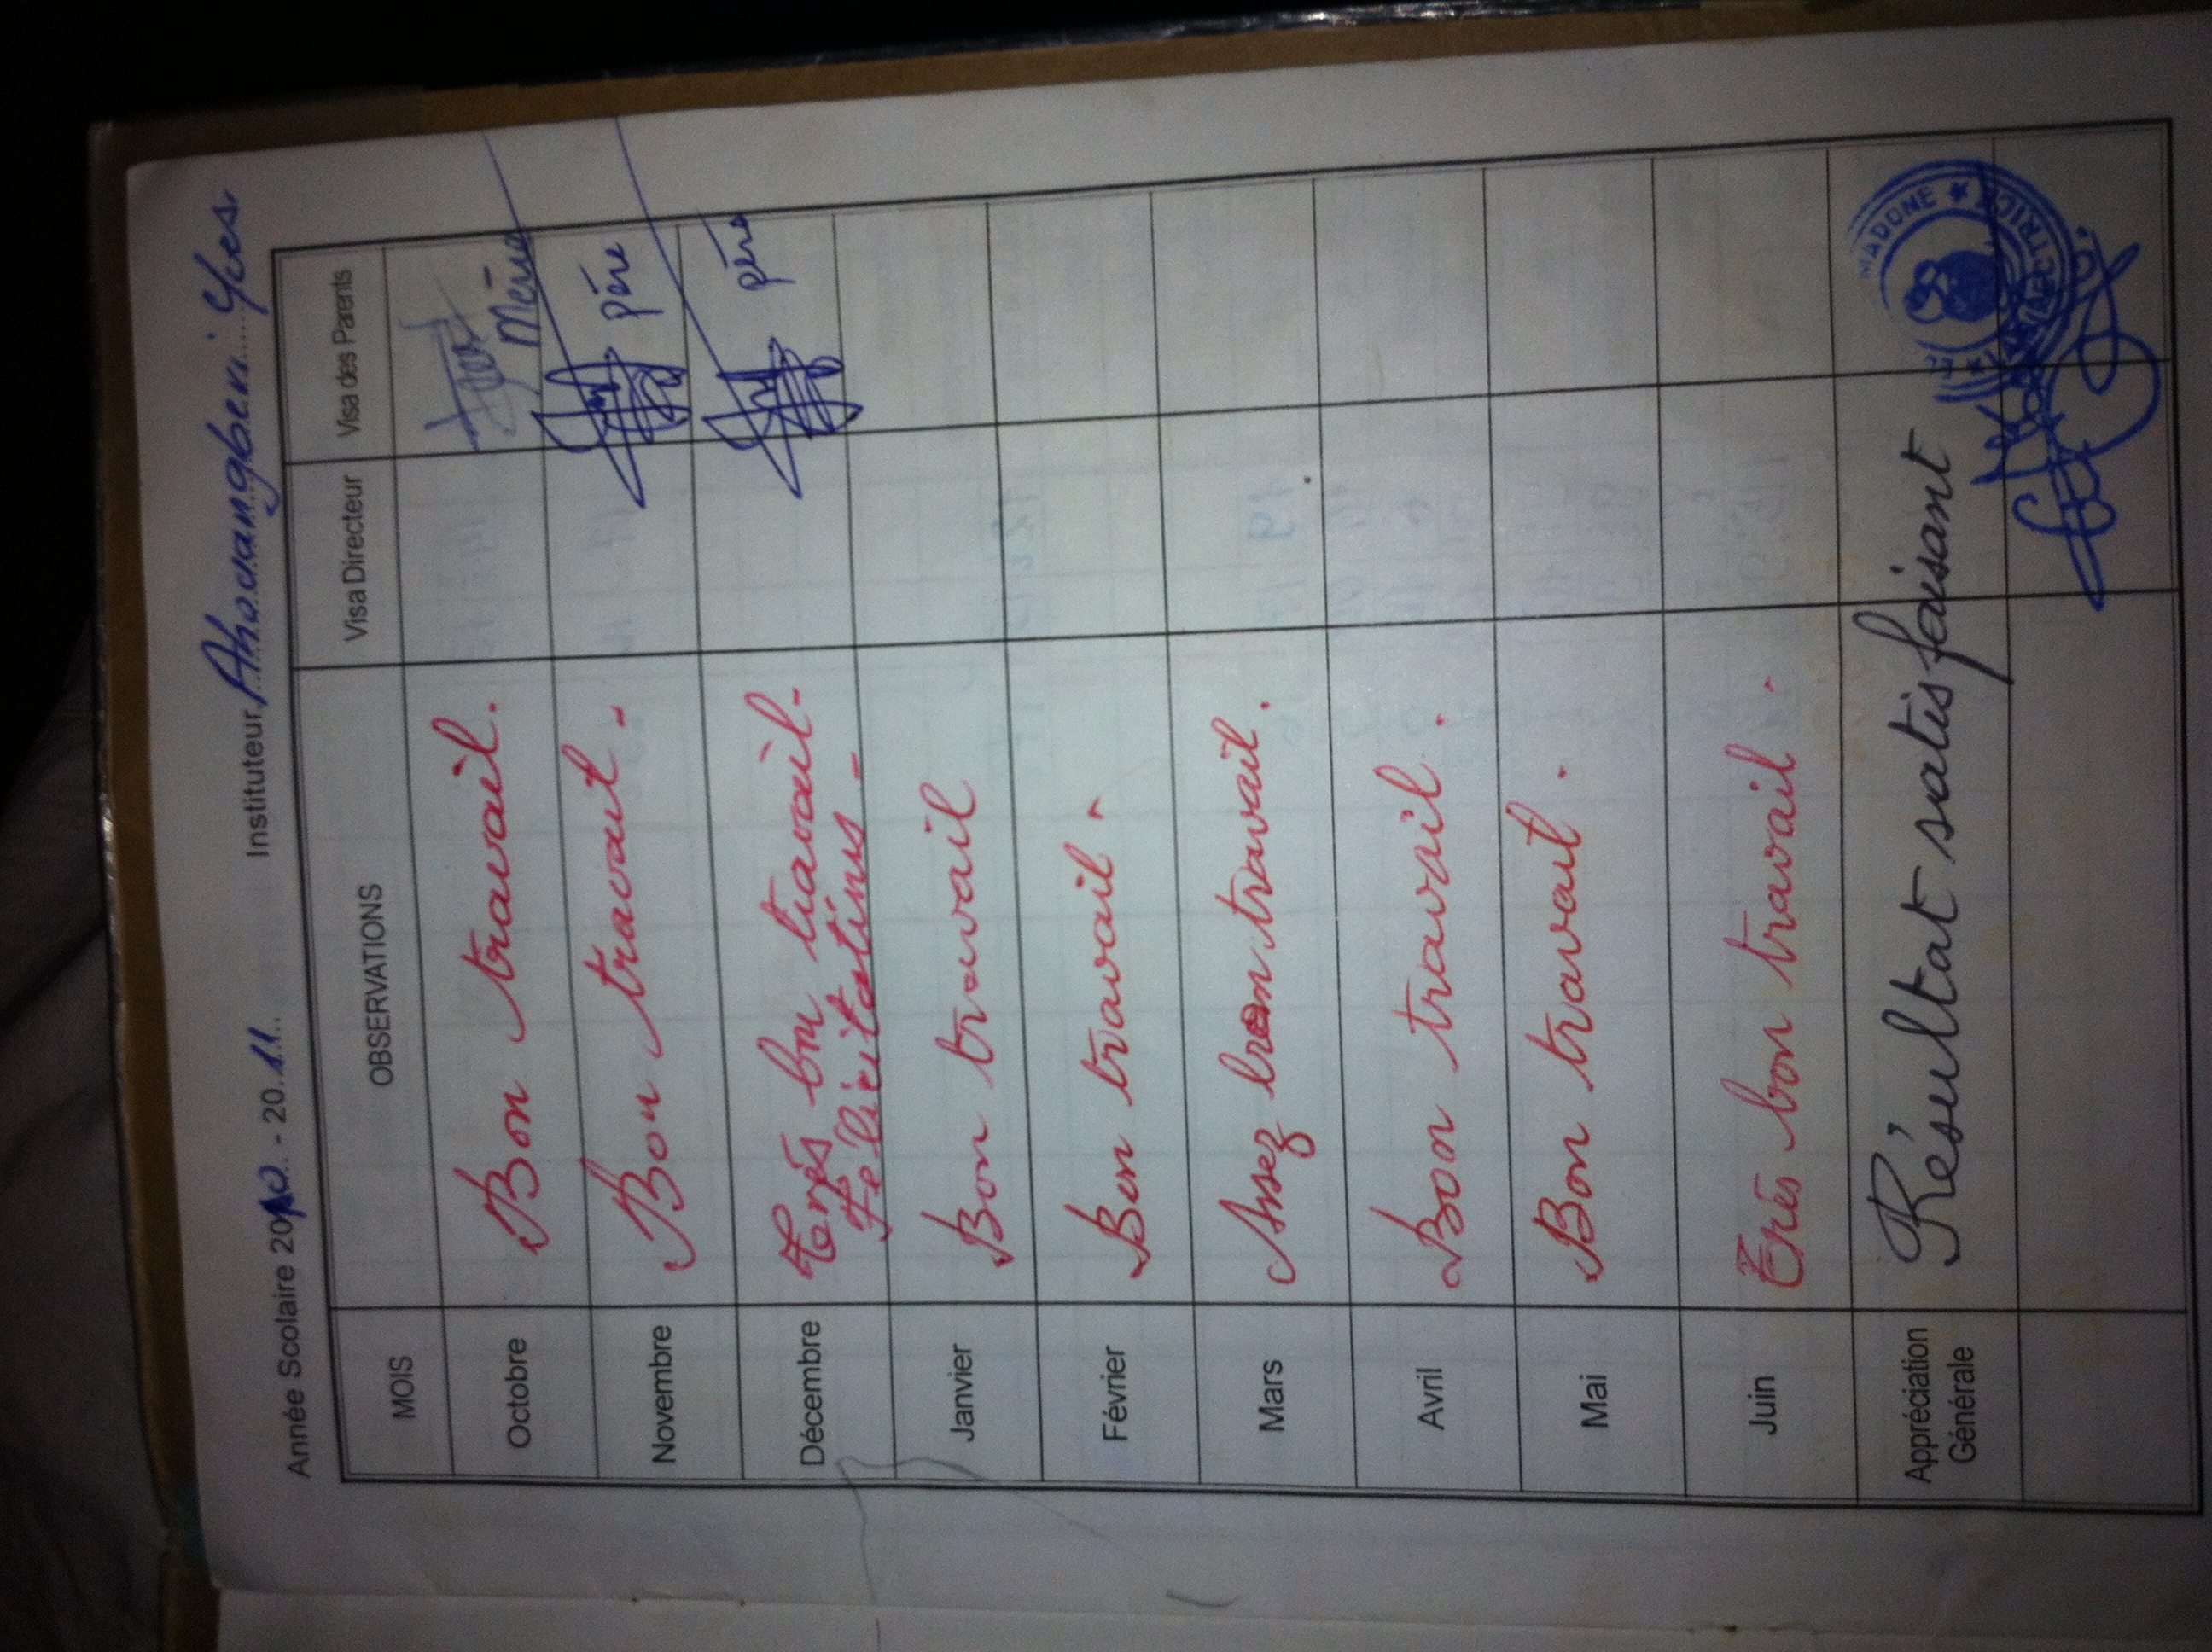 Année Scolaire 2010 - 20 11 Instituteur Ahouangberi Yves
MOIS OBSERVATIONS Visa Directeur Visa des Parents
Octobre Bon travail. Mère
Novembre Bon travail - père
Décembre Très bon travail - père
Félicitations -
Janvier Bon travail
Février Bon travail -
Mars Assez bon travail.
Avril Bon travail.
Mai Bon travail.
Juin Très bon travail.
Appréciation Générale Résultat satisfaisant
MADONE
DIRECTRICE